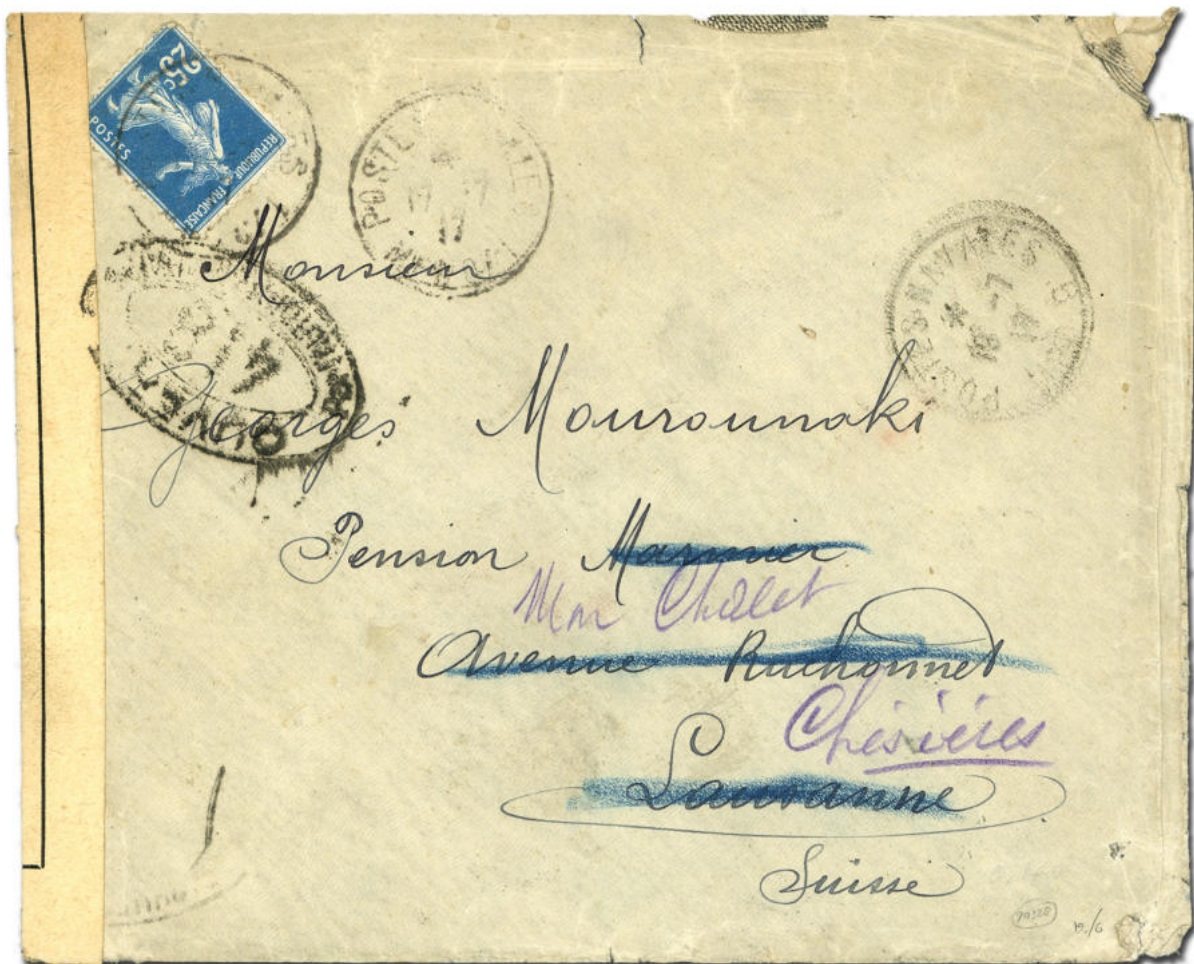 25c
POSTES
REPUBLIQUE FRANÇAISE
19 -7
17
POSTES NAVALES B
* 19 -7
17
OUVERT
Monsieur
Georges Mourounaki
Pension Masnier
Mon Chalet
Avenue Ruchonnet
Chésières
Lausanne
Suisse